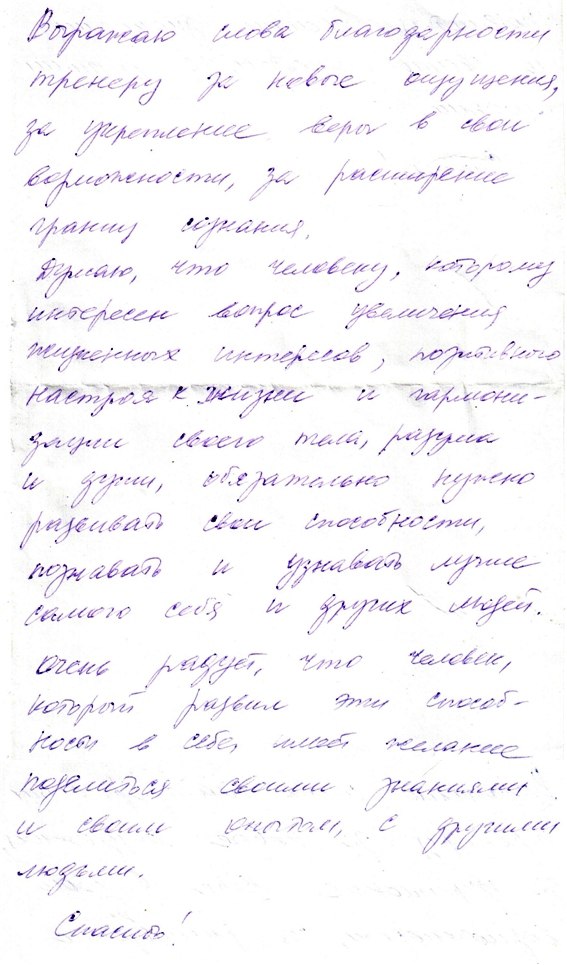 Выражаю слова благодарности
тренеру за новые ощущения,
за укрепление веры в свои
возможности, за расширение
границ сознания.
Думаю, что человеку, которому
интересен вопрос увеличения
жизненных интересов, позитивного
настроя к жизни и гармони-
зации своего тела, разума
и души, обязательно нужно
развивать свои способности,
познавать и узнавать лучше
самого себя и других людей.
Очень радует, что человек,
который развил эти способ-
ности в себе, имеет желание
поделиться своими знаниями
и своим опытом, с другими
людьми.
Спасибо!